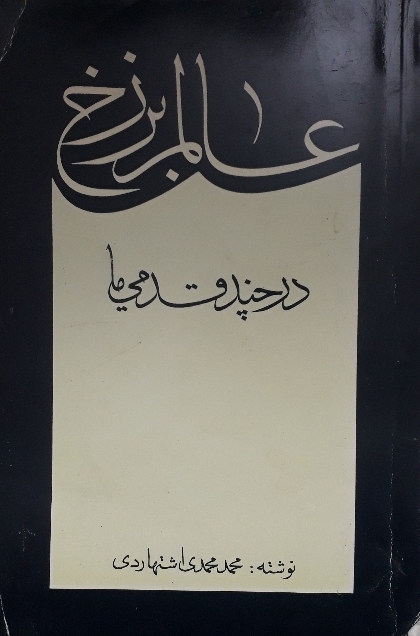 عالم برزخ
در چند قدمی ما
نوشته: محمد محمدی اشتهاردی